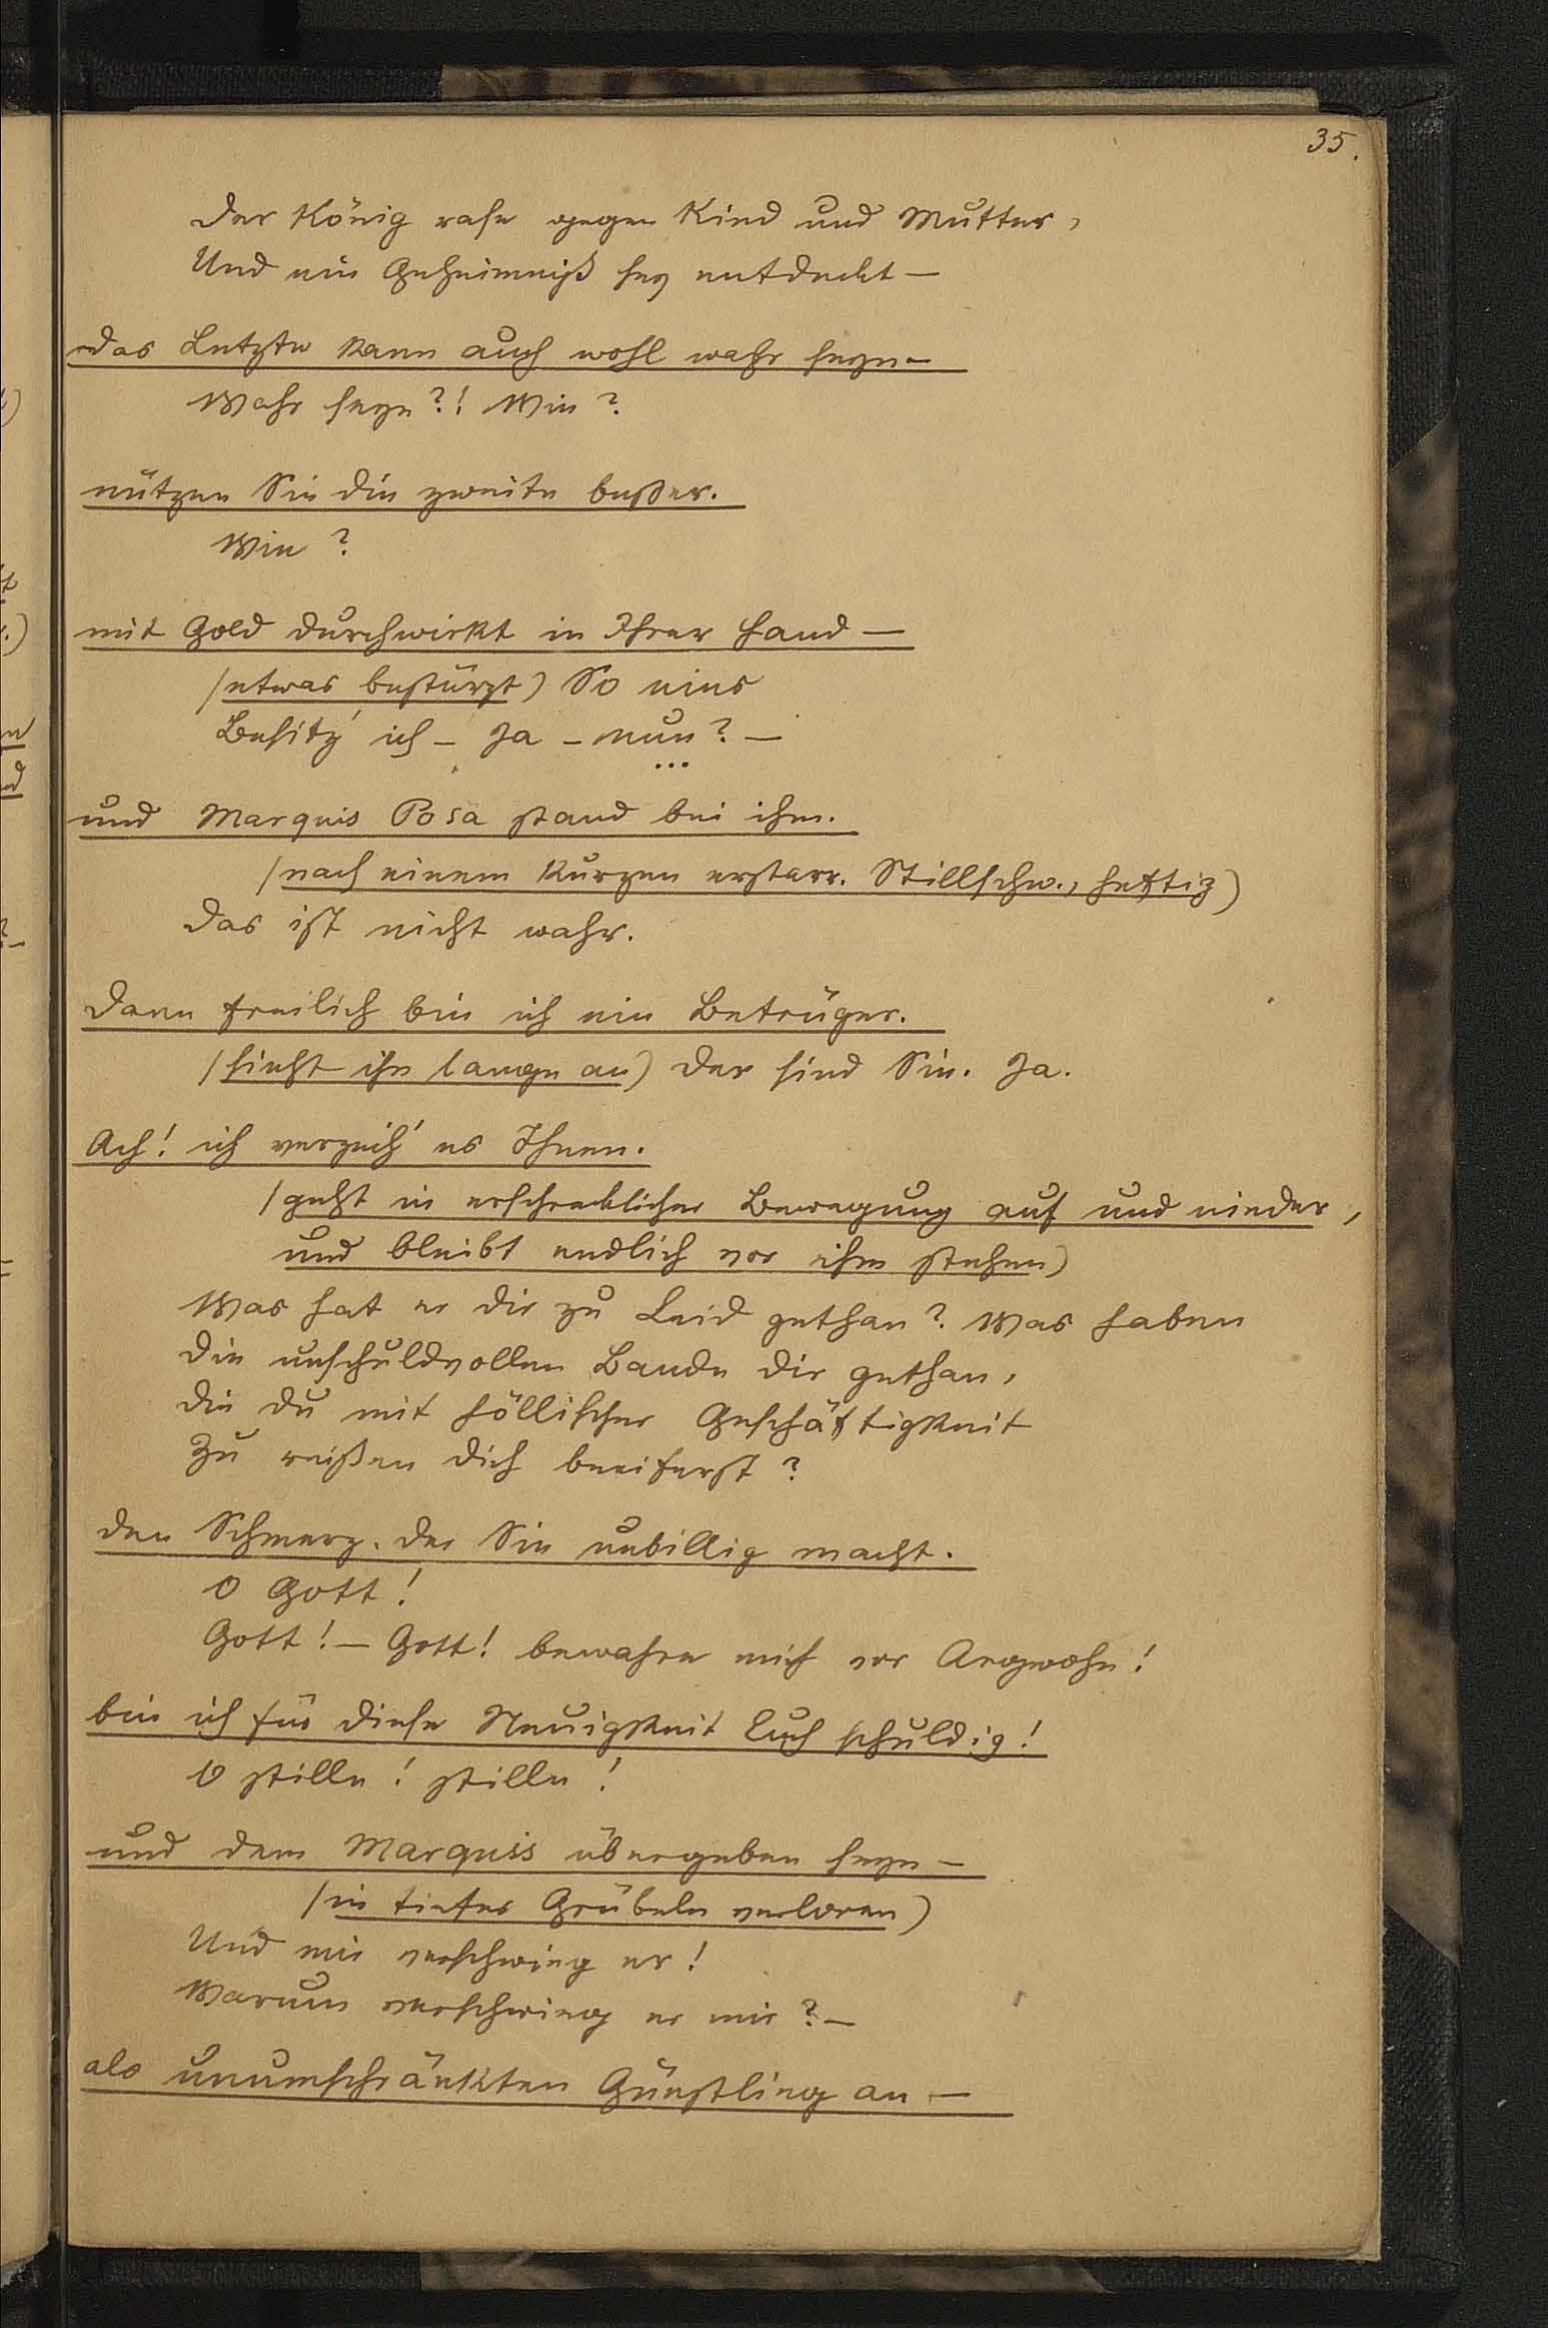 35.
Der König rase gegen Kind und Mutter,
Und ein Geheimniß sey entdeckt —
das Letzte kann auch wohl wahr seyn –
Wahr seyn?! Wie?
nützen Sie die zweite beßer.
Wie?
mit Gold durchwirkt in Ihrer Hand —
(etwas bestürzt) So eins
Besitz' ich – Ja – nun? —
...
und Marquis Posa stand bei ihm.
(nach einem kurzen erstarr. Stillschw., heftig)
Das ist nicht wahr.
Dann freilich bin ich ein Betrüger.
(sieht ihn lange an) Der sind Sie. Ja.
Ach! ich verzeih' es Ihnen.
(geht in erschrecklicher Bewegung auf und nieder,
und bleibt endlich vor ihm stehen)
Was hat er dir zu Leid gethan? Was haben
Die unschuldvollen Bande dir gethan,
Die du mit höllischer Geschäftigkeit
Zu reißen dich beeiferst?
den Schmerz, der Sie unbillig macht.
O Gott!
Gott! — Gott! bewahre mich vor Argwohn!
bin ich für diese Neuigkeit Euch schuldig!
O stille! stille!
und dem Marquis übergeben seyn –
(in tiefes Grübeln verloren)
Und mir verschwieg er!
Warum verschwieg er mir? –
als unumschränkten Günstling an —